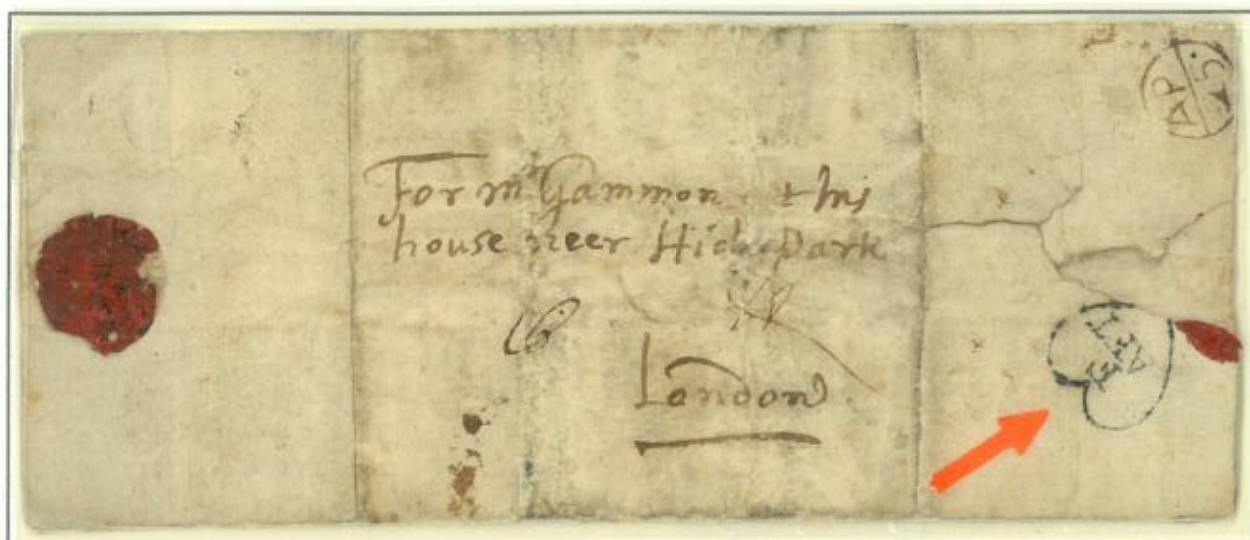 For mr Gammon his
house neer Hide Park
London
AP